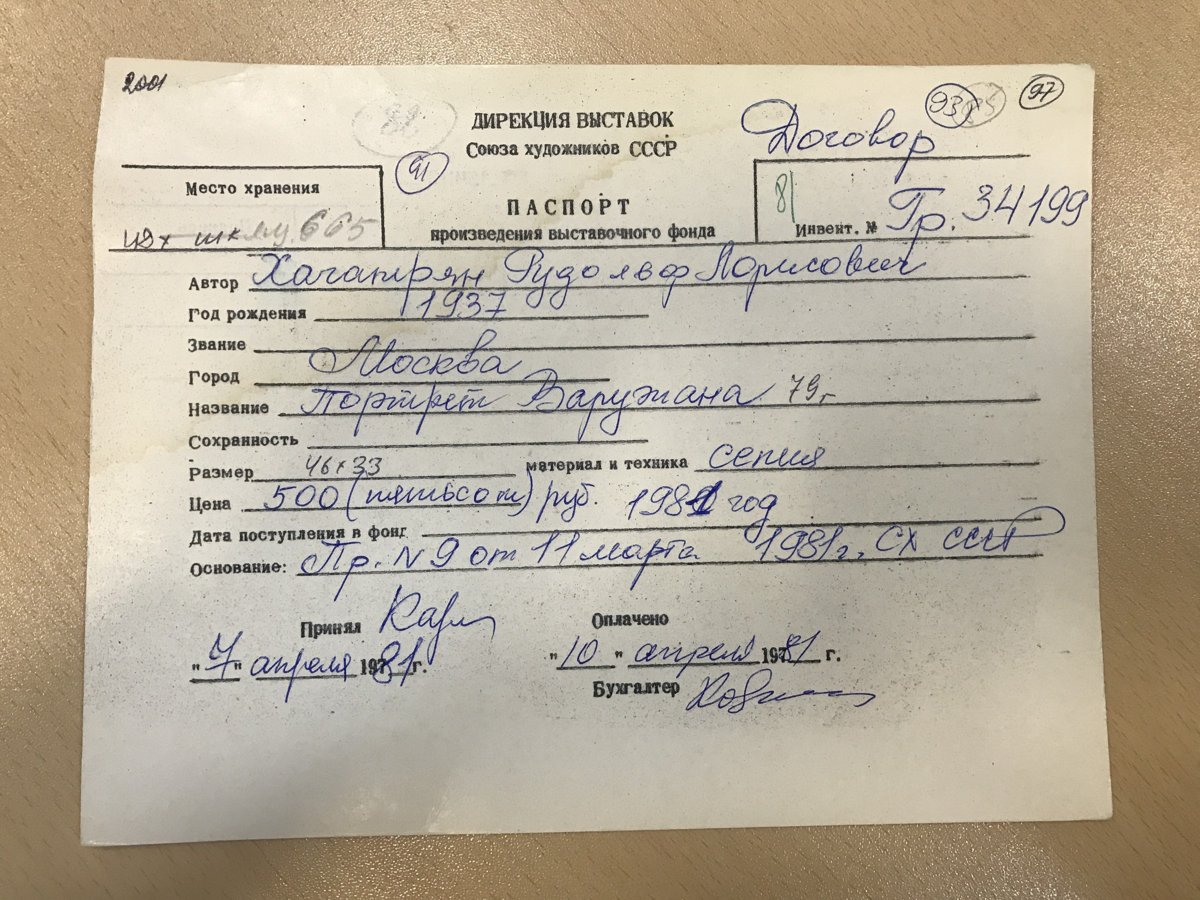 2001
93 97
ДИРЕКЦИЯ ВЫСТАВОК
Союза художников СССР
Договор
91
Место хранения
665
ПАСПОРТ
произведения выставочного фонда
81
Инвент. № Гр. 34199
Автор Хачатрян Рудольф Лорисович
Год рождения 1937
Звание
Город Москва
Название Портрет Варужана 79г
Сохранность
Размер 46х33 материал и техника сепия
Цена 500 (пятьсот) руб. 1981 год
Дата поступления в фонд
Основание: Пр. N 9 от 11 марта 1981г. СХ СССР
Принял
Оплачено
"7" апреля 1981г.
"10" апреля 1981 г.
Бухгалтер